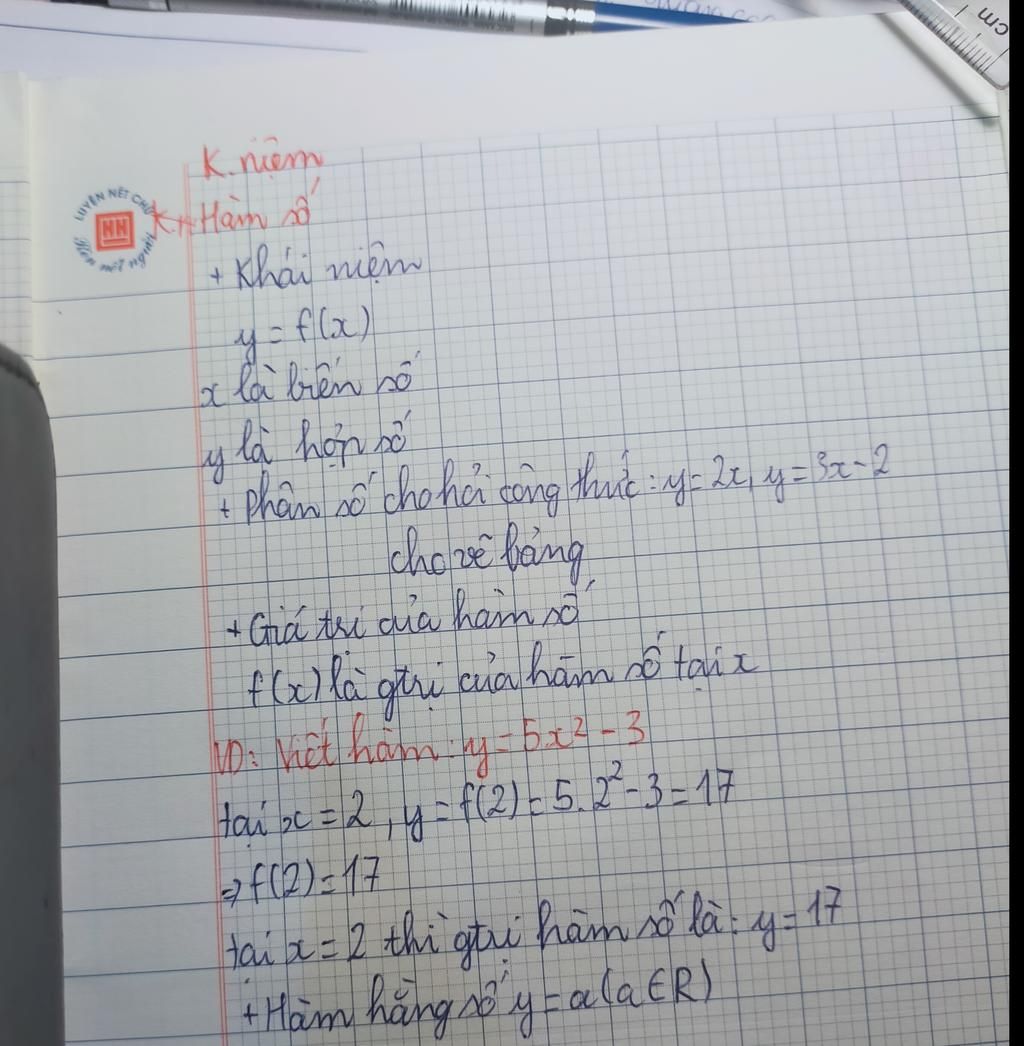 cm
K. niệm
K + Hàm số
LUYỆN NÉT CHỮ
NH
Rèn nết người
+ Khái niệm
y = f(x)
x là biến số
y là hợp số
+ Phân số cho hởi công thức: y = 2x, y = 3x - 2
cho vê bảng
+ Giá trị của hàm số
f(x) là gtrị của hàm số tại x
VD: Viết hàm: y = 5x² - 3
tại x = 2, y = f(2) = 5. 2² - 3 = 17
⇒ f(2) = 17
tại x = 2 thì gtrị hàm số là: y = 17
+ Hàm hằng số y = a (a ∈ R)